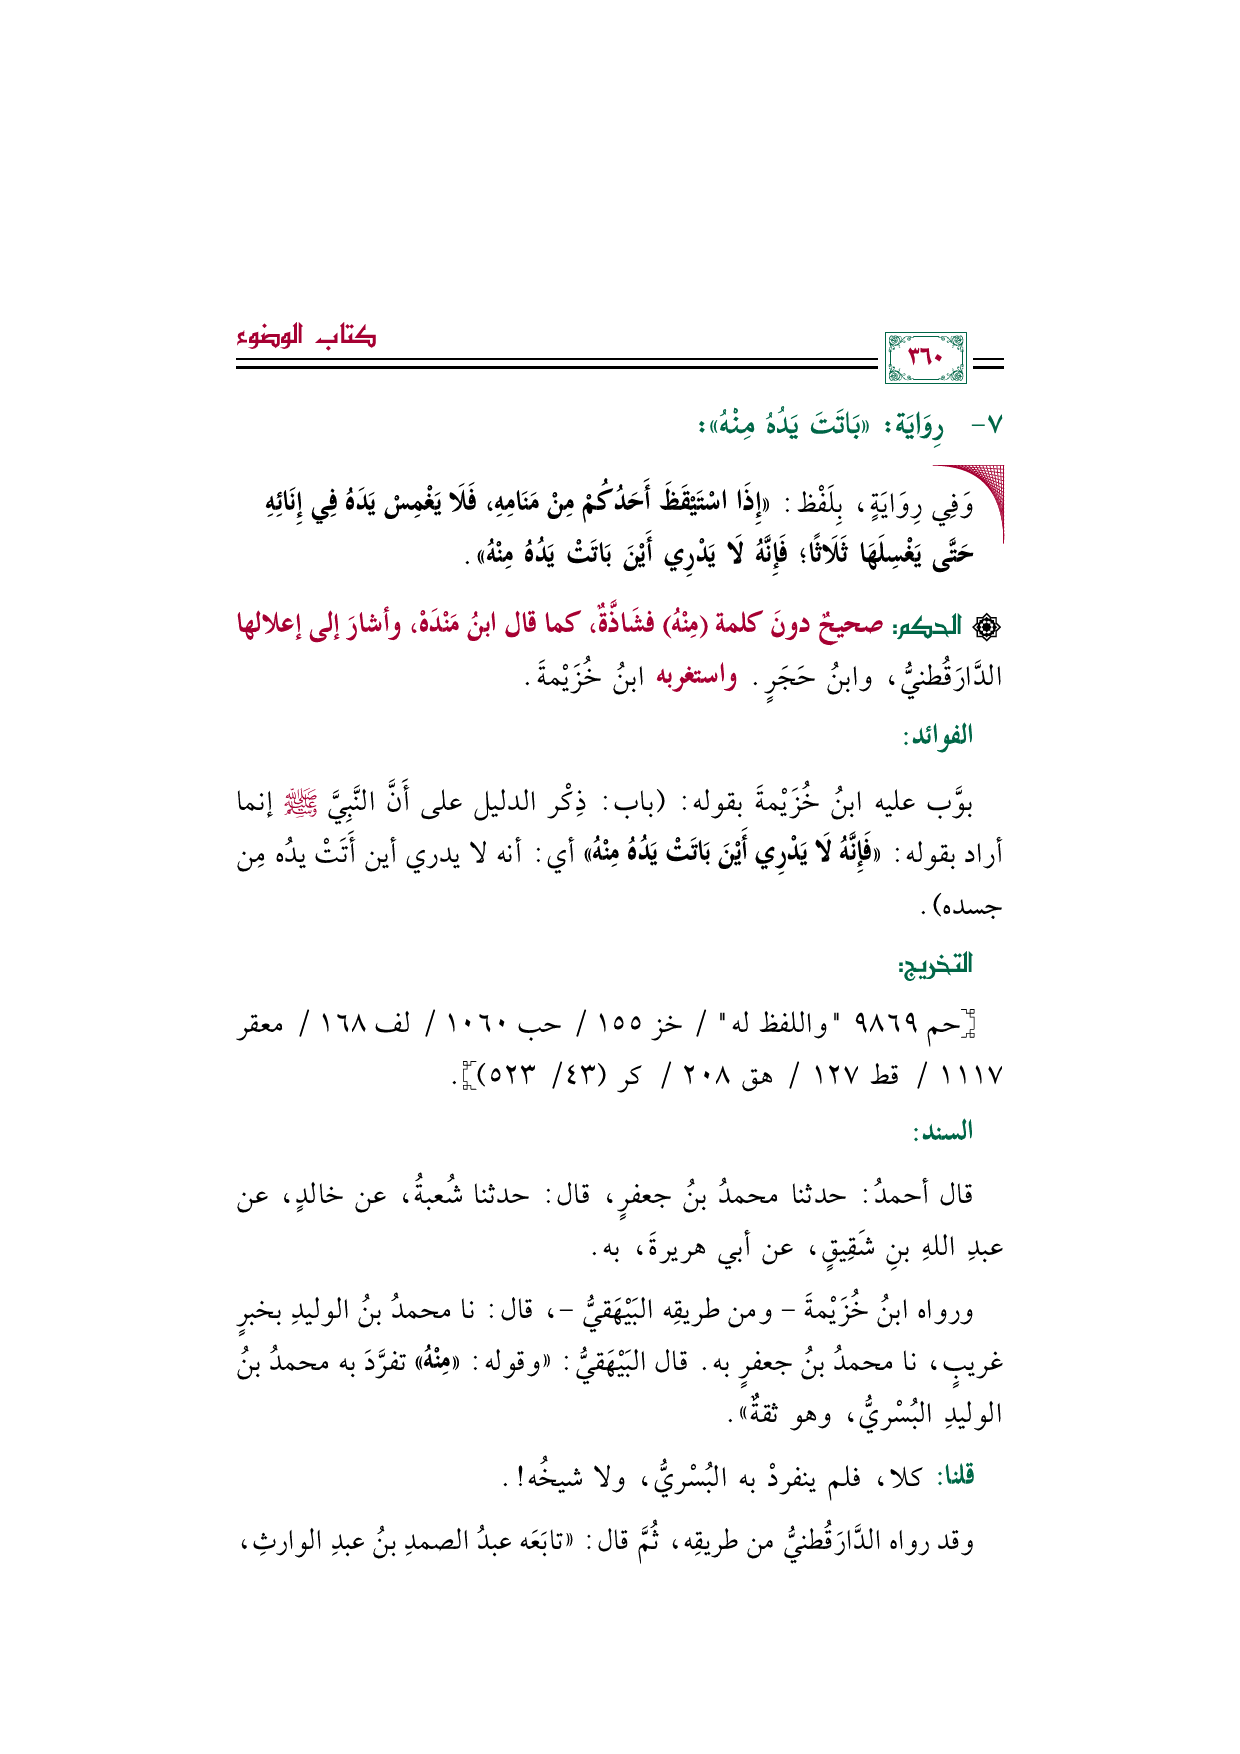 كتاب الوضوء
٣٦٠
٧- رِوَايَة: «بَاتَتَ يَدُهُ مِنْهُ»:
وَفِي رِوَايَةٍ، بِلَفْظ: «إِذَا اسْتَيْقَظَ أَحَدُكُمْ مِنْ مَنَامِهِ، فَلَا يَغْمِسْ يَدَهُ فِي إِنَائِهِ
حَتَّى يَغْسِلَهَا ثَلَاثًا؛ فَإِنَّهُ لَا يَدْرِي أَيْنَ بَاتَتْ يَدُهُ مِنْهُ».
الحكم: صحيحٌ دونَ كلمة (مِنْهُ) فشَاذَّةٌ، كما قال ابنُ مَنْدَهْ، وأشارَ إلى إعلالها
الدَّارَقُطنيُّ، وابنُ حَجَرٍ. واستغربه ابنُ خُزَيْمةَ.
الفوائد:
بوَّب عليه ابنُ خُزَيْمةَ بقوله: (باب: ذِكْر الدليل على أَنَّ النَّبِيَّ ﷺ إنما
أراد بقوله: «فَإِنَّهُ لَا يَدْرِي أَيْنَ بَاتَتْ يَدُهُ مِنْهُ» أي: أنه لا يدري أين أَتَتْ يدُه مِن
جسده).
التخريج:
[حم ٩٨٦٩ "واللفظ له" / خز ١٥٥ / حب ١٠٦٠ / لف ١٦٨ / معقر
١١١٧ / قط ١٢٧ / هق ٢٠٨ / كر (٤٣/ ٥٢٣)].
السند:
قال أحمدُ: حدثنا محمدُ بنُ جعفرٍ، قال: حدثنا شُعبةُ، عن خالدٍ، عن
عبدِ اللهِ بنِ شَقِيقٍ، عن أبي هريرةَ، به.
ورواه ابنُ خُزَيْمةَ - ومن طريقِه البَيْهَقيُّ -، قال: نا محمدُ بنُ الوليدِ بخبرٍ
غريبٍ، نا محمدُ بنُ جعفرٍ به. قال البَيْهَقيُّ: «وقوله: «مِنْهُ» تفرَّدَ به محمدُ بنُ
الوليدِ البُسْريُّ، وهو ثقةٌ».
قلنا: كلا، فلم ينفردْ به البُسْريُّ، ولا شيخُه!.
وقد رواه الدَّارَقُطنيُّ من طريقِه، ثُمَّ قال: «تابَعَه عبدُ الصمدِ بنُ عبدِ الوارثِ،